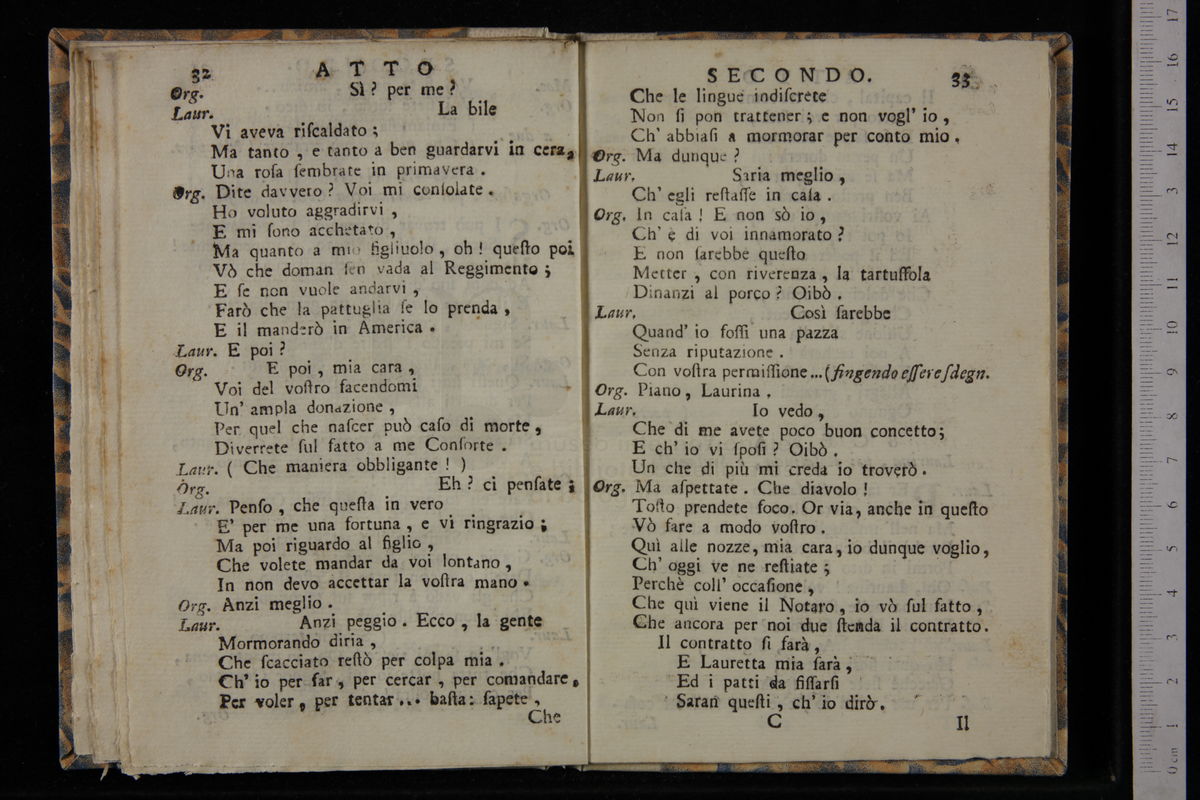 32 ATTO
Org. Sì? per me?
Laur. La bile
Vi aveva riſcaldato;
Ma tanto, e tanto a ben guardarvi in cera,
Una roſa ſembrate in primavera.
Org. Dite davvero? Voi mi conſolate.
Ho voluto aggradirvi,
E mi ſono acchetato,
Ma quanto a mio figliuolo, oh! queſto poi
Vò che doman ſen vada al Reggimento;
E ſe non vuole andarvi,
Farò che la pattuglia ſe lo prenda,
E il manderò in America.
Laur. E poi?
Org. E poi, mia cara,
Voi del voſtro facendomi
Un' ampla donazione,
Per quel che naſcer può caſo di morte,
Diverrete ſul fatto a me Conſorte.
Laur. ( Che maniera obbligante! )
Org. Eh? ci penſate;
Laur. Penſo, che queſta in vero
E' per me una fortuna, e vi ringrazio;
Ma poi riguardo al figlio,
Che volete mandar da voi lontano,
In non devo accettar la voſtra mano.
Org. Anzi meglio.
Laur. Anzi peggio. Ecco, la gente
Mormorando diria,
Che ſcacciato reſtò per colpa mia.
Ch' io per far, per cercar, per comandare,
Per voler, per tentar... baſta: ſapete,
Che
SECONDO. 33
Che le lingue indiſcrete
Non ſi pon trattener; e non vogl' io,
Ch' abbiaſi a mormorar per conto mio.
Org. Ma dunque?
Laur. Saria meglio,
Ch' egli reſtaſſe in caſa.
Org. In caſa! E non sò io,
Ch' è di voi innamorato?
E non ſarebbe queſto
Metter, con riverenza, la tartuffola
Dinanzi al porco? Oibò.
Laur. Così ſarebbe
Quand' io foſſi una pazza
Senza riputazione.
Con voſtra permiſſione... (fingendo eſſere ſdegn.
Org. Piano, Laurina.
Laur. Io vedo,
Che di me avete poco buon concetto;
E ch' io vi ſpoſi? Oibò.
Un che di più mi creda io troverò.
Org. Ma aſpettate. Che diavolo!
Toſto prendete foco. Or via, anche in queſto
Vò fare a modo voſtro.
Quì alle nozze, mia cara, io dunque voglio,
Ch' oggi ve ne reſtiate;
Perchè coll' occaſione,
Che quì viene il Notaro, io vò ſul fatto,
Che ancora per noi due ſtenda il contratto.
Il contratto ſi farà,
E Lauretta mia ſarà,
Ed i patti da fiſſarſi
Saran queſti, ch' io dirò.
C Il
0 cm 1 2 3 4 5 6 7 8 9 10 11 12 13 14 15 16 17